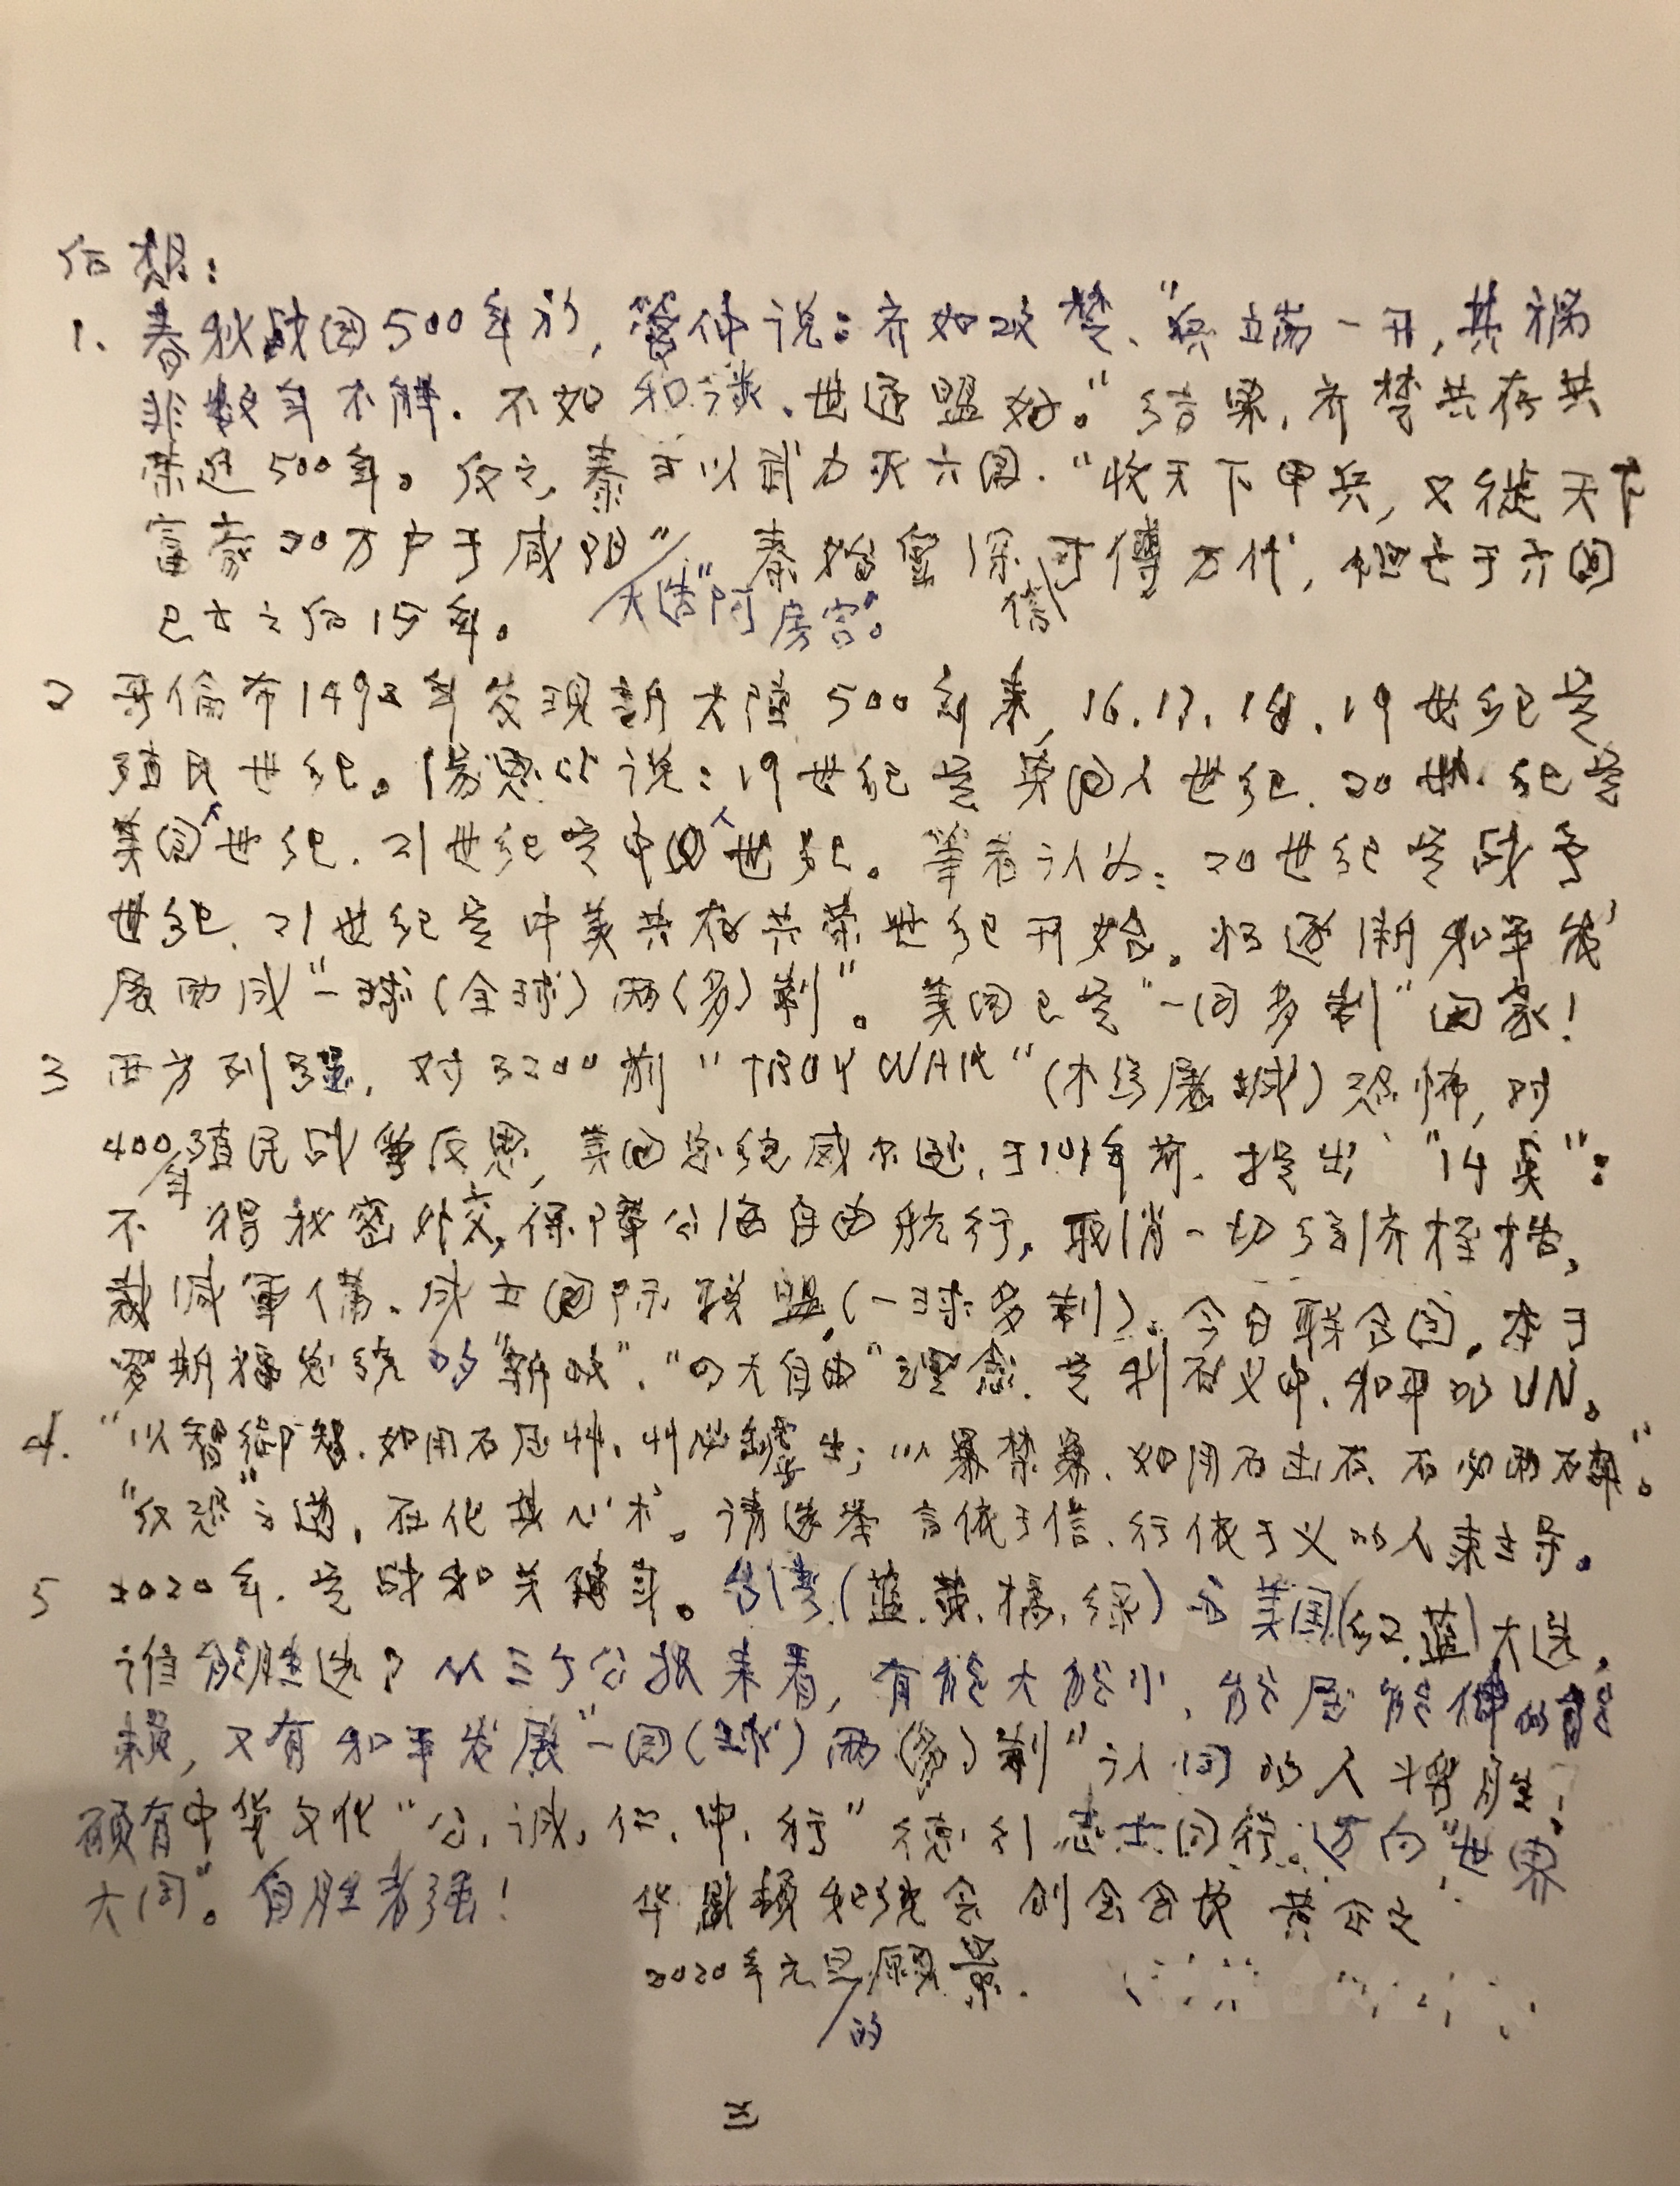 后想:
1、春秋战国500年前,管仲说:齐如攻楚、"兵端一开,其祸
非数年不解.不如和谈、世通盟好。"结果,齐楚共存共
荣近500年。反之,秦王以武力灭六国."收天下甲兵,又徙天下
富豪20万户于咸阳",大造"阿房宫"。秦始皇深信可傳万代,但亡于六国
已亡之后15年。
2 哥倫布1492年发现新大陸500年来,16.17.18.19世纪是
殖民世纪。湯恩比说:19世纪是英国人世纪.20世纪是
美国人世纪.21世纪是中国人世纪。筆者认为:20世纪是战争
世纪、21世纪是中美共存共荣世纪开始。将逐漸和平发
展而成"一球(全球)两(多)制"。美国已是"一国多制"国家!
3 西方列强,对3200前"TROY WAR"(木马屠城)恐怖,对
400年殖民战爭反思,美国总统威尔逊,于101年前.提出"14点":
不得秘密外交,保障公海自由航行,取消一切经济桎梏,
裁减軍備、成立国际联盟(一球多制)。今日联合国,本于
罗斯福总统的"新政"、"四大自由"理念.是利在义中、和平的UN。
4."以智御智.如用石压艸,艸必罅出;以暴禁暴、如用石击石、石必两碎。"
"反恐"之道,在化其心术。请选举言依于信、行依于义的人来主导。
5 2020年.是战和关键年。台湾(蓝.黄.橘.绿)与美国(红.蓝)大选,
谁能胜选?从三个公报来看,有能大能小、能屈能伸的能
耐,又有和平发展"一国(球)两(多)制"认同的人将胜!
願有中华文化"公,诚,仁、中、行"德行志士同行。迈向"世界
大同"。自胜者强! 华盛頓和统会 创会会长 黄
2020年元旦的願景.
三